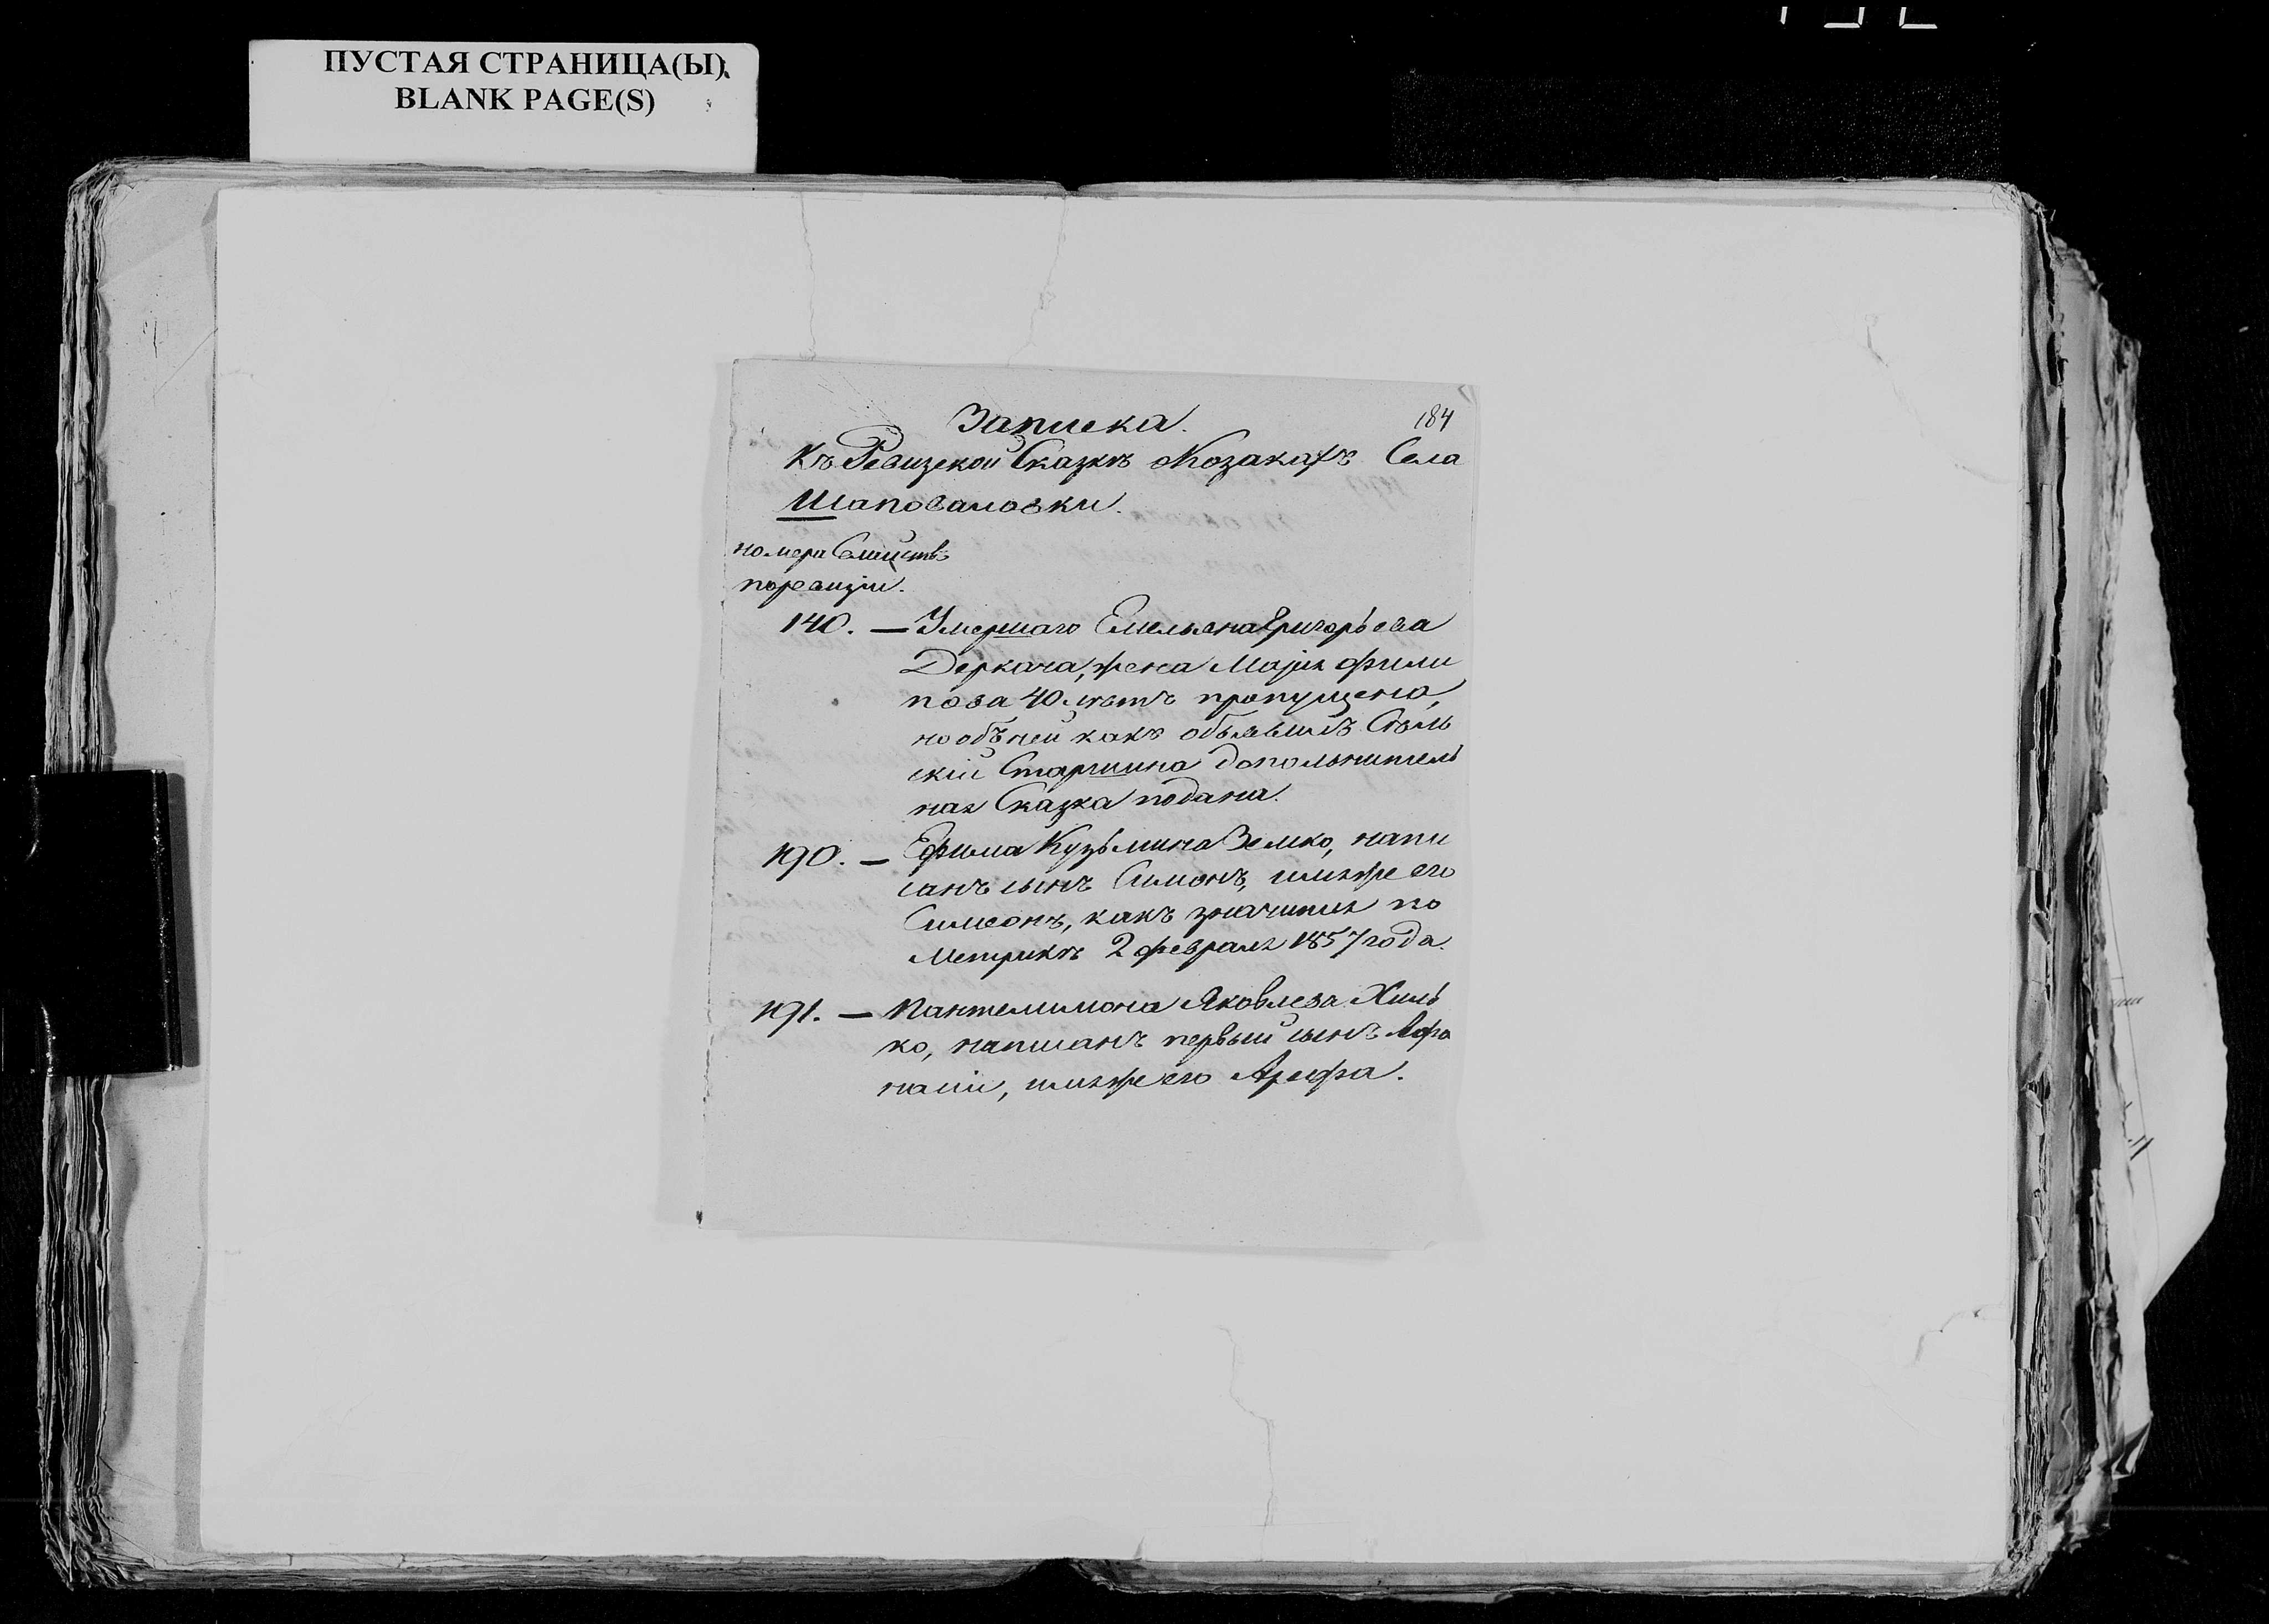 ПУСТАЯ СТРАНИЦА(Ы)
BLANK PAGE(S)
184
Записка.
Къ Ревизской Сказкѣ о Козакахъ Села
Шаповаловки.
номера Семействъ
по ревизіи.
140. — Умершаго Емельяна Григорьева
Деркача, жена Марія Фили
пова 40 лѣтъ пропущена,
но объ ней какъ объявилъ Сѣль
скій Старшина допольнитель
ная Сказка подана.
190. — Ефима Кузьмина Земко, напи
санъ сынъ Симонъ, имя же его
Симеонъ, какъ значится по
Метрикѣ 2 февраля 1857 года.
191. — Пантелимона Яковлева Хиль
ко, написанъ первый сынъ Афа
насій, имя же его Арефа.